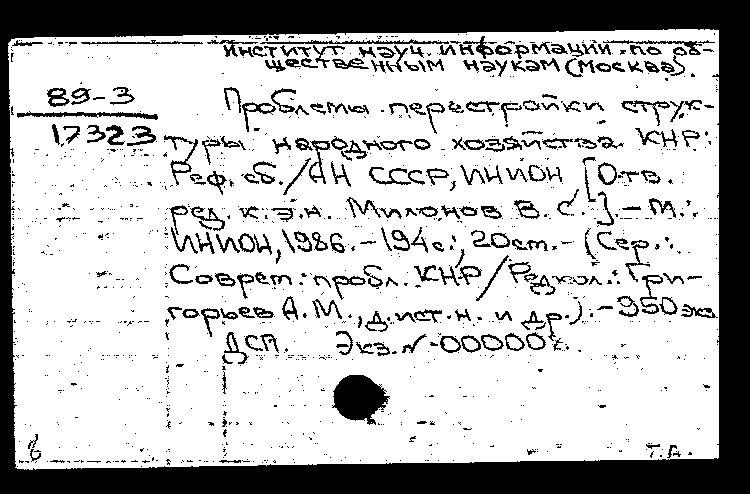 институт науч. информации по об-
щественным наукам (Москва).
89-3
17323
Проблема перестройки струк-
туры народного хозяйства КНР:
Реф. сб./АН СССР, ИНИОН [Отв.
ред. к.э.н. Милонов В. С.]. - М.:
ИНИОН, 1986. - 194с.; 20см. - (Сер.:
Соврет. пробл. КНР/Редкол.: Гри-
горьев А.М., д.ист.н. и др.). - 950 экз
ДСП. Экз. N-00000
Т.А.